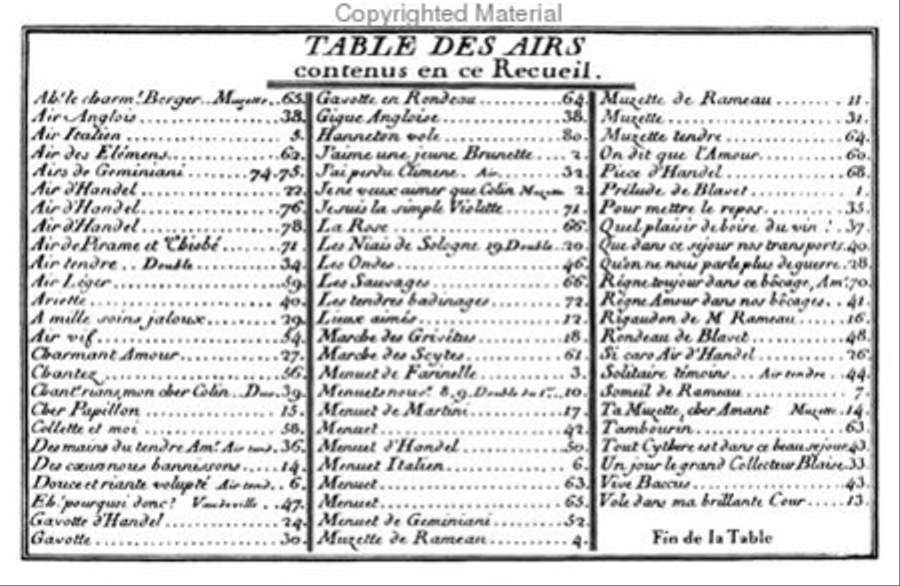 Copyrighted Material
TABLE DES AIRS
contenus en ce Recueil.
Ah! le charm.t Berger.. Muzette..65.
Air Anglois..................38.
Air Italien...................5.
Air des Elémens..............62.
Airs de Geminiani........74.75.
Air d'Handel.................22.
Air d'Handel.................76.
Air d'Handel.................78.
Air de Pirame et Thisbé......71.
Air tendre.. Double..........34.
Air Léger....................59.
Ariette......................40.
A mille soins jaloux.........29.
Air vif......................54.
Charmant Amour...............27.
Chantez......................56.
Chant.s rians, mon cher Colin..Duo.39.
Cher Papillon................15.
Collette et moi..............58.
Des mains du tendre Am.r Air tend..36.
Des cœurs nous bannissons....14.
Douce et riante volupté Air tend..6.
Eh! pourquoi donc? Vaudeville..47.
Gavotte d'Handel.............24.
Gavotte......................30.
Gavotte en Rondeau...........64.
Gigue Angloise...............38.
Hanneton vole................80.
J'aime une jeune Brunette....2.
J'ai perdu Climene. Air......32.
Je ne veux aimer que Colin Muzette 2.
Je suis la simple Violette...71.
La Rose......................66.
Les Niais de Sologne 19. Double..20.
Les Ondes....................46.
Les Sauvages.................66.
Les tendres badinages........72.
Lieux aimés..................12.
Marche des Grivétus..........18.
Marche des Scytes............61.
Menuet de Farinelle..........3.
Menuets nouv.x 8.9. Double du 1.er...10.
Menuet de Martini............17.
Menuet.......................42.
Menuet d'Handel..............50.
Menuet Italien...............6.
Menuet.......................63.
Menuet.......................65.
Menuet de Geminiani..........52.
Muzette de Rameau............4.
Muzette de Rameau............11.
Muzette......................31.
Muzette tendre...............64.
On dit que l'Amour...........60.
Piece d'Handel...............68.
Prélude de Blavet............1.
Pour mettre le repos.........35.
Quel plaisir de boire du vin!..37.
Que dans ce sejour nos transports.40.
Qu'on ne nous parle plus de guerre..28.
Régne toujour dans ce bôcage, Am.r 70.
Régne Amour dans nos bôcages..41.
Rigaudon de M Rameau.........16.
Rondeau de Blavet............48.
Si caro Air d'Handel.........26.
Solitaire témoins... Air tendre..44.
Someil de Rameau.............7.
Ta Muzette, cher Amant Muzette.14.
Tambourin....................63.
Tout Cythere est dans ce beau sejour 43.
Un jour le grand Collecteur Blaise.33.
Vive Baccus..................43.
Vole dans ma brillante Cour..13.
Fin de la Table